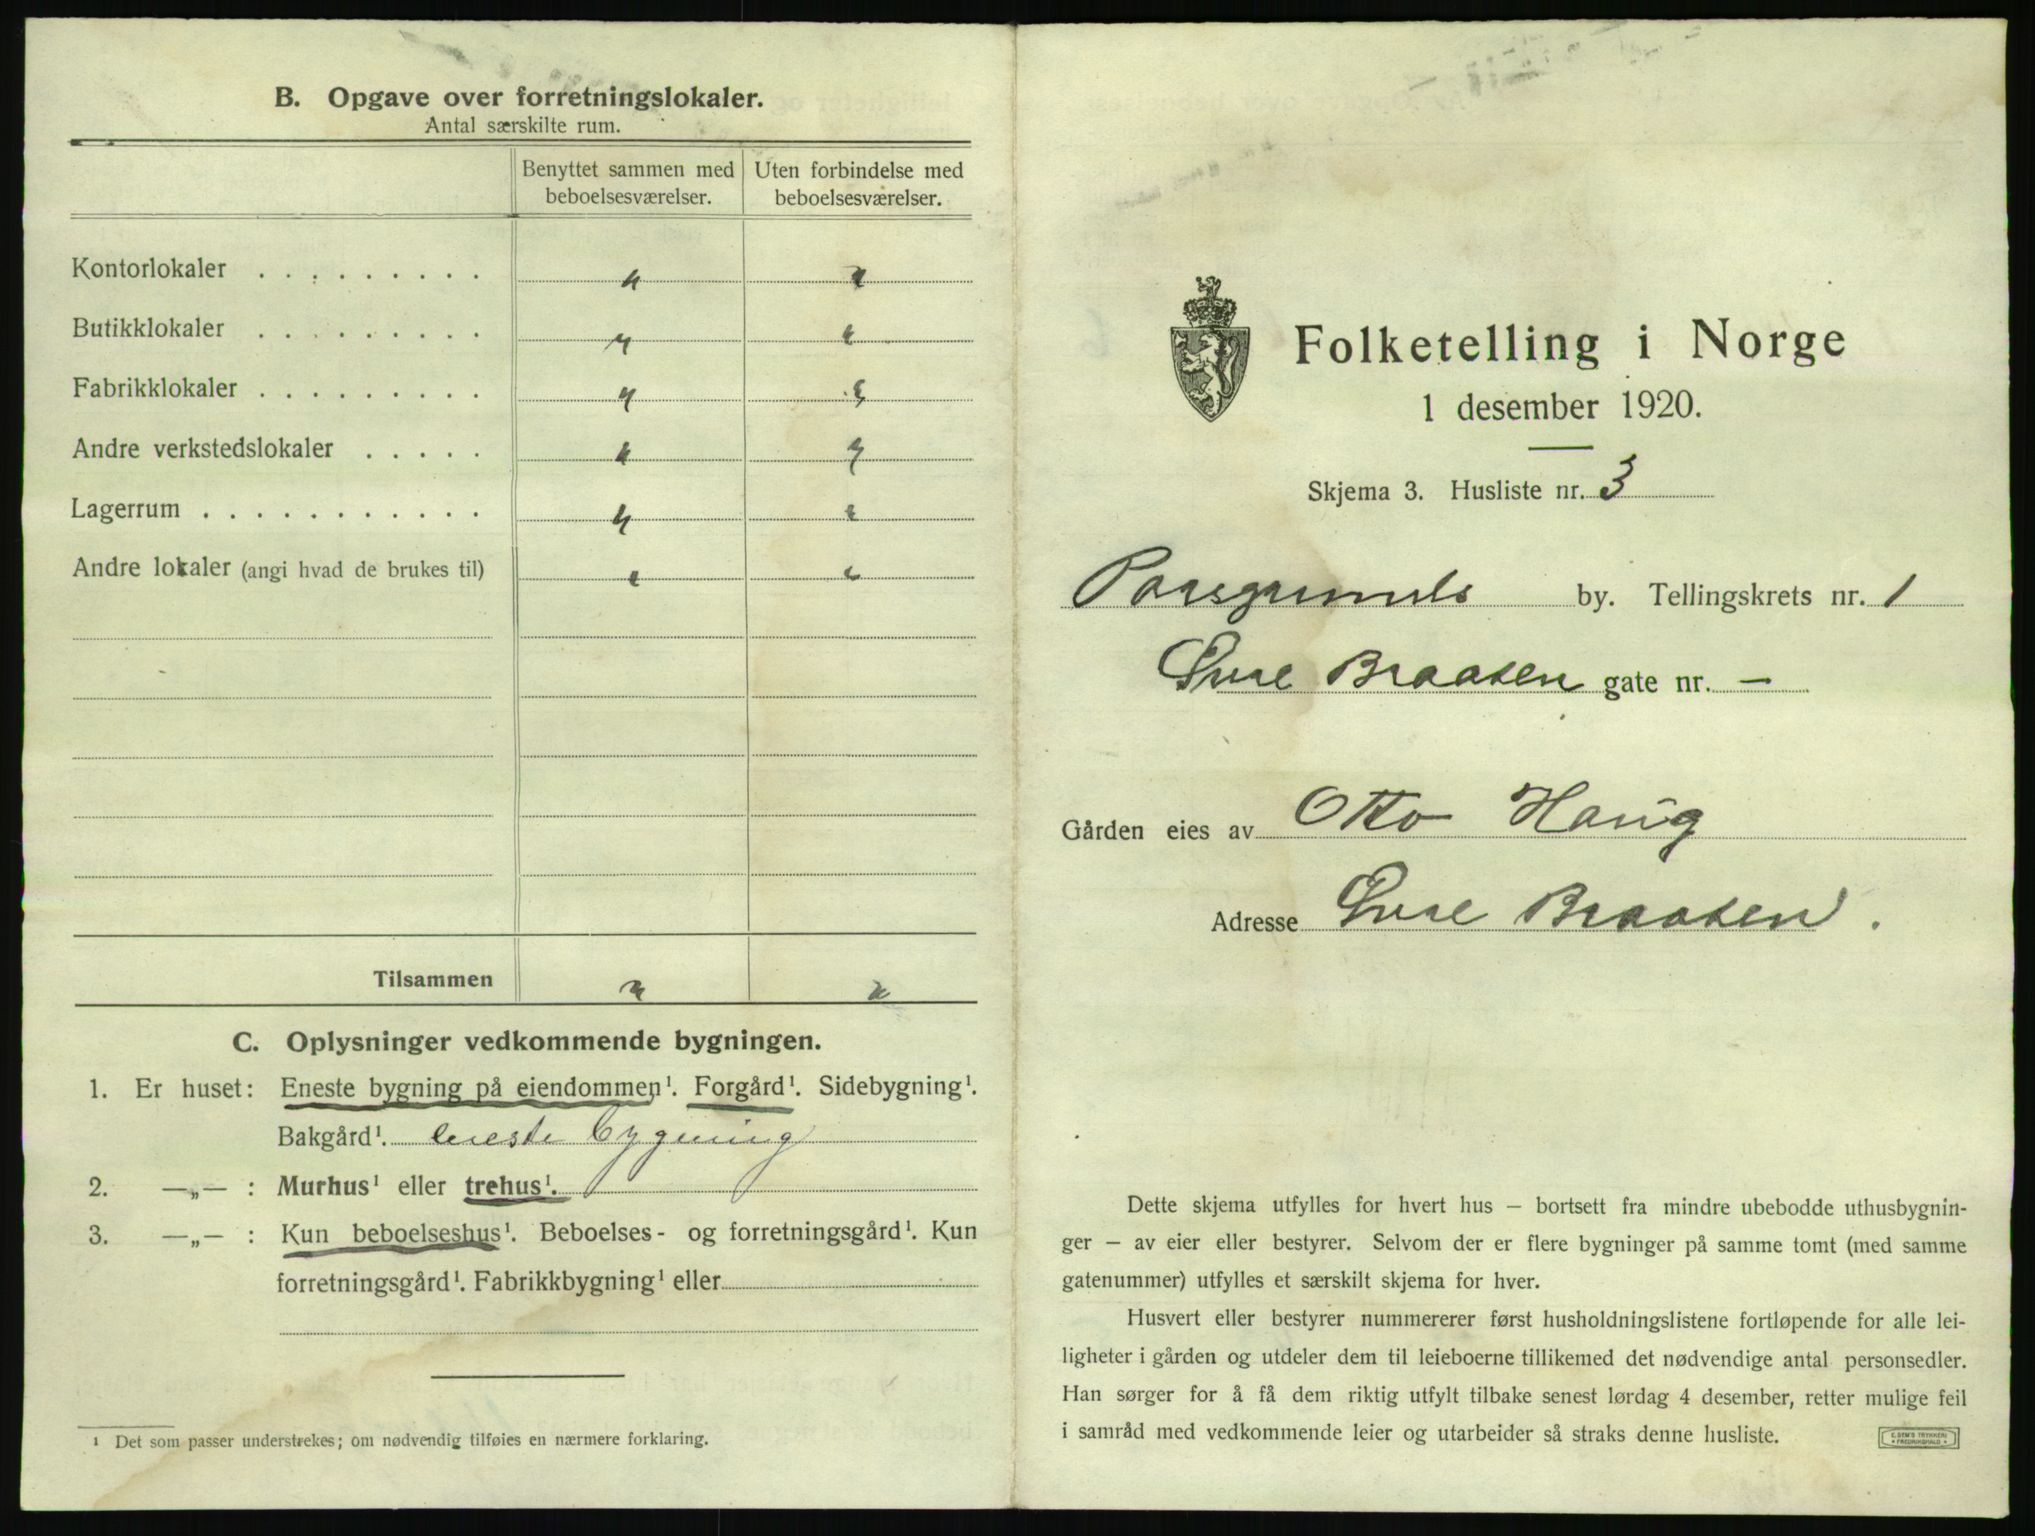 B. Opgave over forretningslokaler.
Antal særskilte rum.
Benyttet sammen med beboelsesværelser.
Uten forbindelse med beboelsesværelser.
Kontorlokaler . . . . . . . . .
Butikklokaler . . . . . . . . .
Fabrikklokaler . . . . . . . . .
Andre verkstedslokaler . . . . .
Lagerrum . . . . . . . . . . .
Andre lokaler (angi hvad de brukes til)
Tilsammen
C. Oplysninger vedkommende bygningen.
1. Er huset: Eneste bygning på eiendommen¹. Forgård¹. Sidebygning¹.
Bakgård¹. eneste bygning
2. —„— : Murhus¹ eller trehus¹.
3. —„— : Kun beboelseshus¹. Beboelses- og forretningsgård¹. Kun
forretningsgård¹. Fabrikkbygning¹ eller
¹ Det som passer understrekes; om nødvendig tilføies en nærmere forklaring.
Folketelling i Norge
1 desember 1920.
Skjema 3. Husliste nr. 3
Porsgrunds by. Tellingskrets nr. 1
Øvre Braaten gate nr. —
Gården eies av Otto Haug
Adresse Øvre Braaten.
Dette skjema utfylles for hvert hus — bortsett fra mindre ubebodde uthusbygnin-
ger — av eier eller bestyrer. Selvom der er flere bygninger på samme tomt (med samme
gatenummer) utfylles et særskilt skjema for hver.
Husvert eller bestyrer nummererer først husholdningslistene fortløpende for alle lei-
ligheter i gården og utdeler dem til leieboerne tillikemed det nødvendige antal personsedler.
Han sørger for å få dem riktig utfylt tilbake senest lørdag 4 desember, retter mulige feil
i samråd med vedkommende leier og utarbeider så straks denne husliste.
E. SEM'S TRYKKERI
FREDRIKSHALD